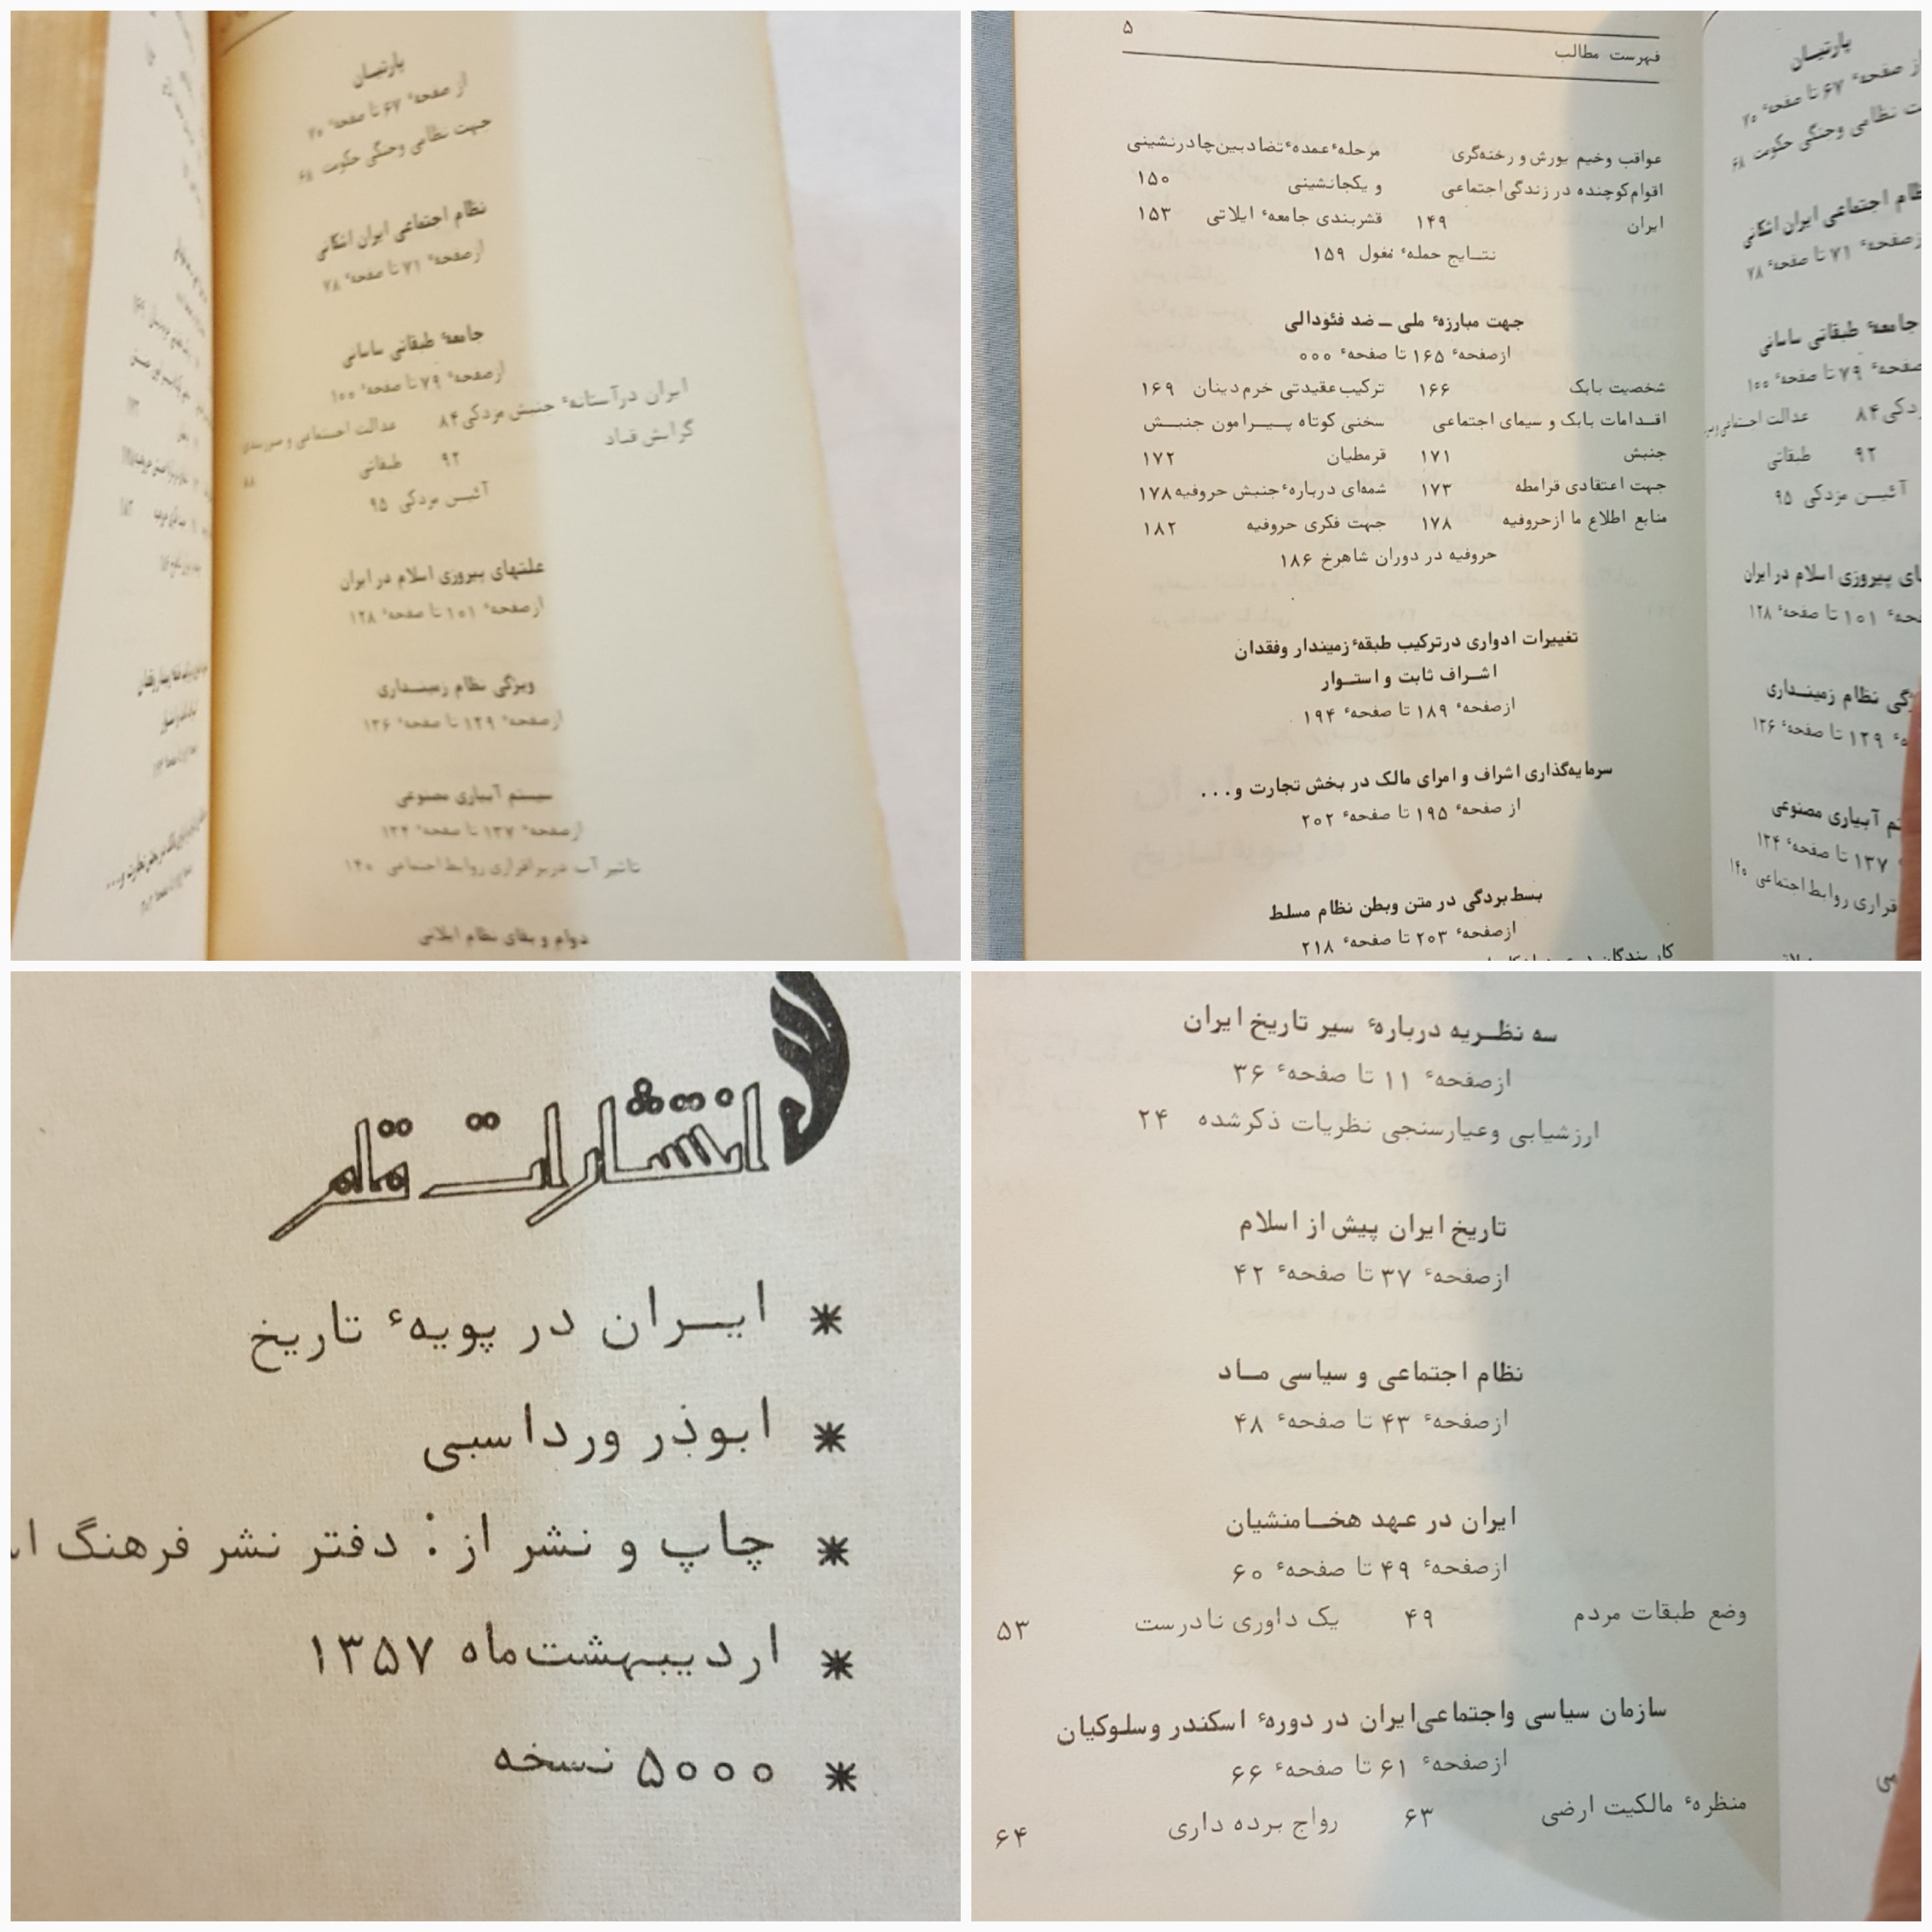 پارتیـان
از صفحهٔ ۶۷ تا صفحهٔ ۷۰
جهت نظامی وجنگی حکومت ۶۸
نظام اجتماعی ایران اشکانی
ازصفحهٔ ۷۱ تا صفحهٔ ۷۸
جامعهٔ طبقاتی ساسانی
ازصفحهٔ ۷۹ تا صفحهٔ ۱۰۰
ایران درآستانهٔ جنبش مزدکی ۸۴ عدالت اجتماعی و
گرایش قباد ۹۲ طبقاتی ۸۸
آئیـن مزدکی ۹۵
علتهای پیروزی اسلام در ایران
ازصفحهٔ ۱۰۱ تا صفحهٔ ۱۲۸
ویژگی نظام زمینـداری
ازصفحهٔ ۱۲۹ تا صفحهٔ ۱۳۶
سیستم آبیاری مصنوعی
ازصفحهٔ ۱۳۷ تا صفحهٔ ۱۴۴
تاثیر آب در برقراری روابط اجتماعی ۱۴۰
دوام و بقای نظام ایلاتی
فهرست مطالب ۵
عواقب وخیم یورش و رخنه‌گری مرحلهٔ عمدهٔ تضاد بین چادرنشینی
اقوام کوچنده در زندگی اجتماعی و یکجانشینی ۱۵۰
ایران ۱۴۹ قشربندی جامعهٔ ایلاتی ۱۵۳
نتـایج حملهٔ مغول ۱۵۹
جهت مبارزهٔ ملی ــ ضد فئودالی
ازصفحهٔ ۱۶۵ تا صفحهٔ ۰۰۰
شخصیت بابک ۱۶۶ ترکیب عقیدتی خرم‌دینان ۱۶۹
اقـدامات بابک و سیمای اجتماعی سخنی کوتاه پـیـرامون جنبـش
جنبش ۱۷۱ قرمطیان ۱۷۲
جهت اعتقادی قرامطه ۱۷۳ شمه‌ای دربارهٔ جنبش حروفیه ۱۷۸
منابع اطلاع ما ازحروفیه ۱۷۸ جهت فکری حروفیه ۱۸۲
حروفیه در دوران شاهرخ ۱۸۶
تغییرات ادواری درترکیب طبقهٔ زمیندار وفقدان
اشـراف ثابت و استـوار
ازصفحهٔ ۱۸۹ تا صفحهٔ ۱۹۴
سرمایه‌گذاری اشراف و امرای مالک در بخش تجارت و...
از صفحهٔ ۱۹۵ تا صفحهٔ ۲۰۲
بسط بردگی در متن وبطن نظام مسلط
ازصفحهٔ ۲۰۳ تا صفحهٔ ۲۱۸
انتشارات قلم
* ایـران در پویهٔ تاریخ
* ابوذر ورداسبی
* چاپ و نشر از : دفتر نشر فرهنگ
* اردیبهشت‌ماه ۱۳۵۷
* ۵۰۰۰ نسخه
سه نظـریه دربارهٔ سیر تاریخ ایران
ازصفحهٔ ۱۱ تا صفحهٔ ۳۶
ارزشیابی وعیارسنجی نظریات ذکرشده ۲۴
تاریخ ایران پیش از اسلام
ازصفحهٔ ۳۷ تا صفحهٔ ۴۲
نظام اجتماعی و سیاسی مـاد
ازصفحهٔ ۴۳ تا صفحهٔ ۴۸
ایران در عهد هخـامنشیان
ازصفحهٔ ۴۹ تا صفحهٔ ۶۰
وضع طبقات مردم ۴۹ یک داوری نادرست ۵۳
سازمان سیاسی واجتماعی ایران در دورهٔ اسکندر وسلوکیان
ازصفحهٔ ۶۱ تا صفحهٔ ۶۶
منظرهٔ مالکیت ارضی ۶۳ رواج برده داری ۶۴